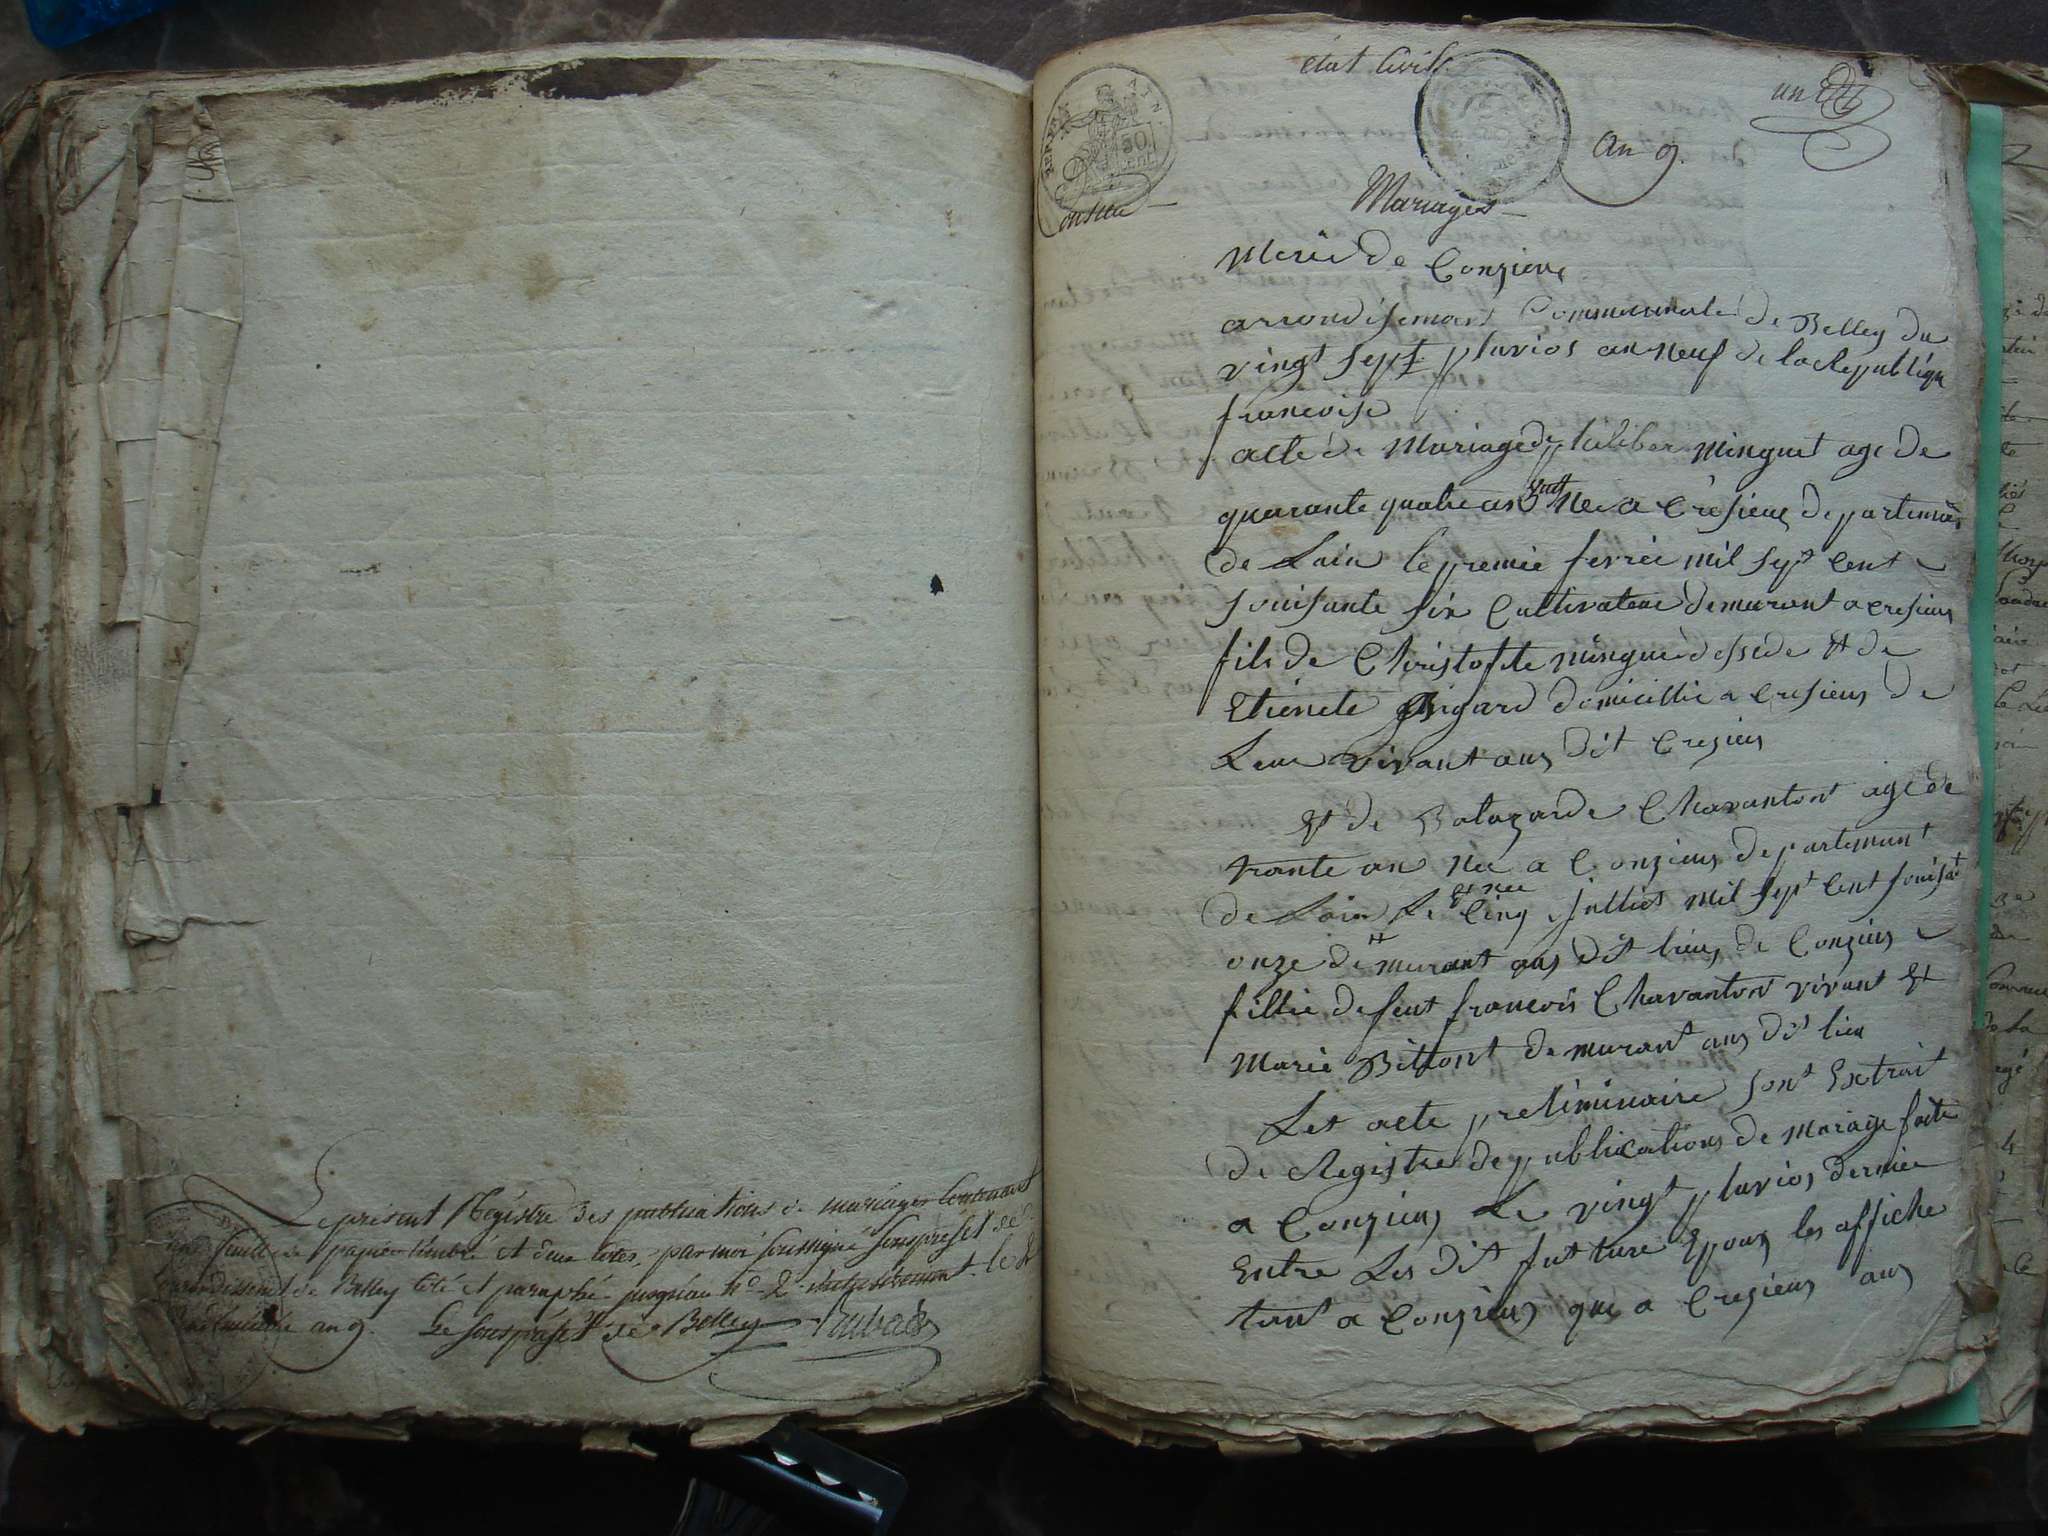 Le présent Régistre des publications de mariages contenant
une feuille papier timbré et deux cotés, par moi soussigné souspréfet de
de Belley coté et paraphé jusqu'au n.º 2 le 8
an 9. Le souspréfet de Belley
état Civil
un
REP. FRA
AIN
50
CENT
an 9.
Conzieu
Mariages
Merie de Conzieux
arrondisemant Communale de Belley du
vingt sept pluvios an neuf de la Republique
francoise
acte de Mariage de philiber Minguet age de
quarante quatre ans Nee a Cresieux departemant
de Lain le premie fevrie mil sept cent
souisante six Cultivateur demurant a cresieux
fils de Christofle minguè dessede Et de
Etienete Gigard domicillie a Cresieux de
Leur vivant aux dit Cresieux
Et de Balazarde Chavanton age de
trante an Nee a Conzieux departemant
de Lain Le Et nee Cinq Julliet mil sept cent souisat
onze demurant aux dit lieux de Conzieux
fillie de feut francois Chavanton vivant Et
Marie Bittont demurant aux dit lieu
Les acte preliminaire sont Extrait
de Registre de publications de mariage faite
a Conzieux Le vingt pluvios dernier
Entre Les dit futture Epoux les affiche
tant a Conzieux que a Cresieux aux